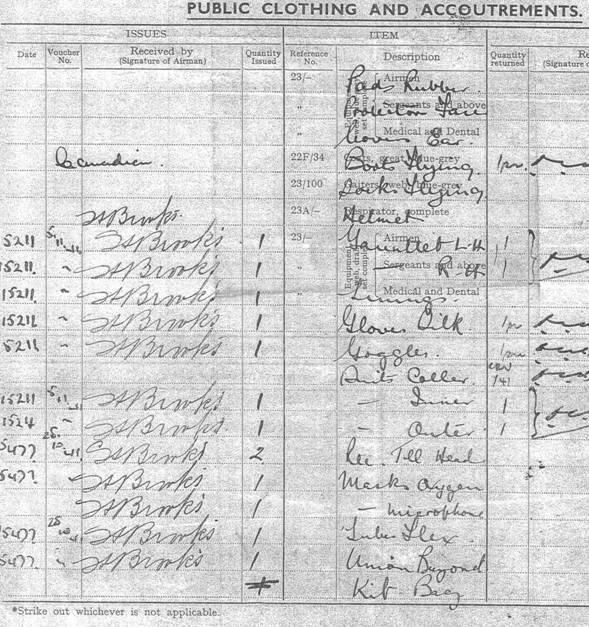 PUBLIC CLOTHING AND ACCOUTREMENTS.
ISSUES ITEM
Date Voucher No. Received by (Signature of Airman) Quantity Issued Reference No. Description Quantity returned
23/— Airmen Pads Rubber
„ Sergeants and above Protection Face
„ Medical and Dental Covers Ear.
Canadian. 22F/34 great blue-grey Boots Flying 1pr.
23/100 Gaiters, web, blue-grey Flying
HBrooks. 23A/— Respirator, complete Helmet
15211 HBrooks 1 23/— Airmen Gauntlet L.H 1
15211. " HBrooks 1 „ Sergeants and above — R.H. 1
15211. " HBrooks 1 „ Medical and Dental Linings.
15211 " HBrooks 1 Gloves Silk 1pr
15211 " HBrooks 1 Goggles. 1pr
Suits Collar
15211 HBrooks 1 — Inner 1
1524 " HBrooks. 1 — Outer 1
5477 HBrooks 2 Rec. Tel Head
5477 HBrooks 1 Masks Oxygen
HBrooks 1 — microphone
5477 HBrooks 1 Tube Flex.
5477. " HBrooks 1 Union Bayond
Kit Bag
*Strike out whichever is not applicable.